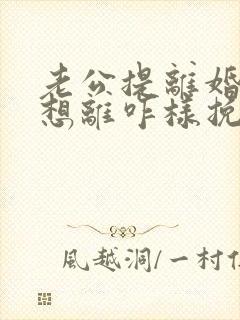 老公提離婚
想離咋樣挽
風越洞/一村